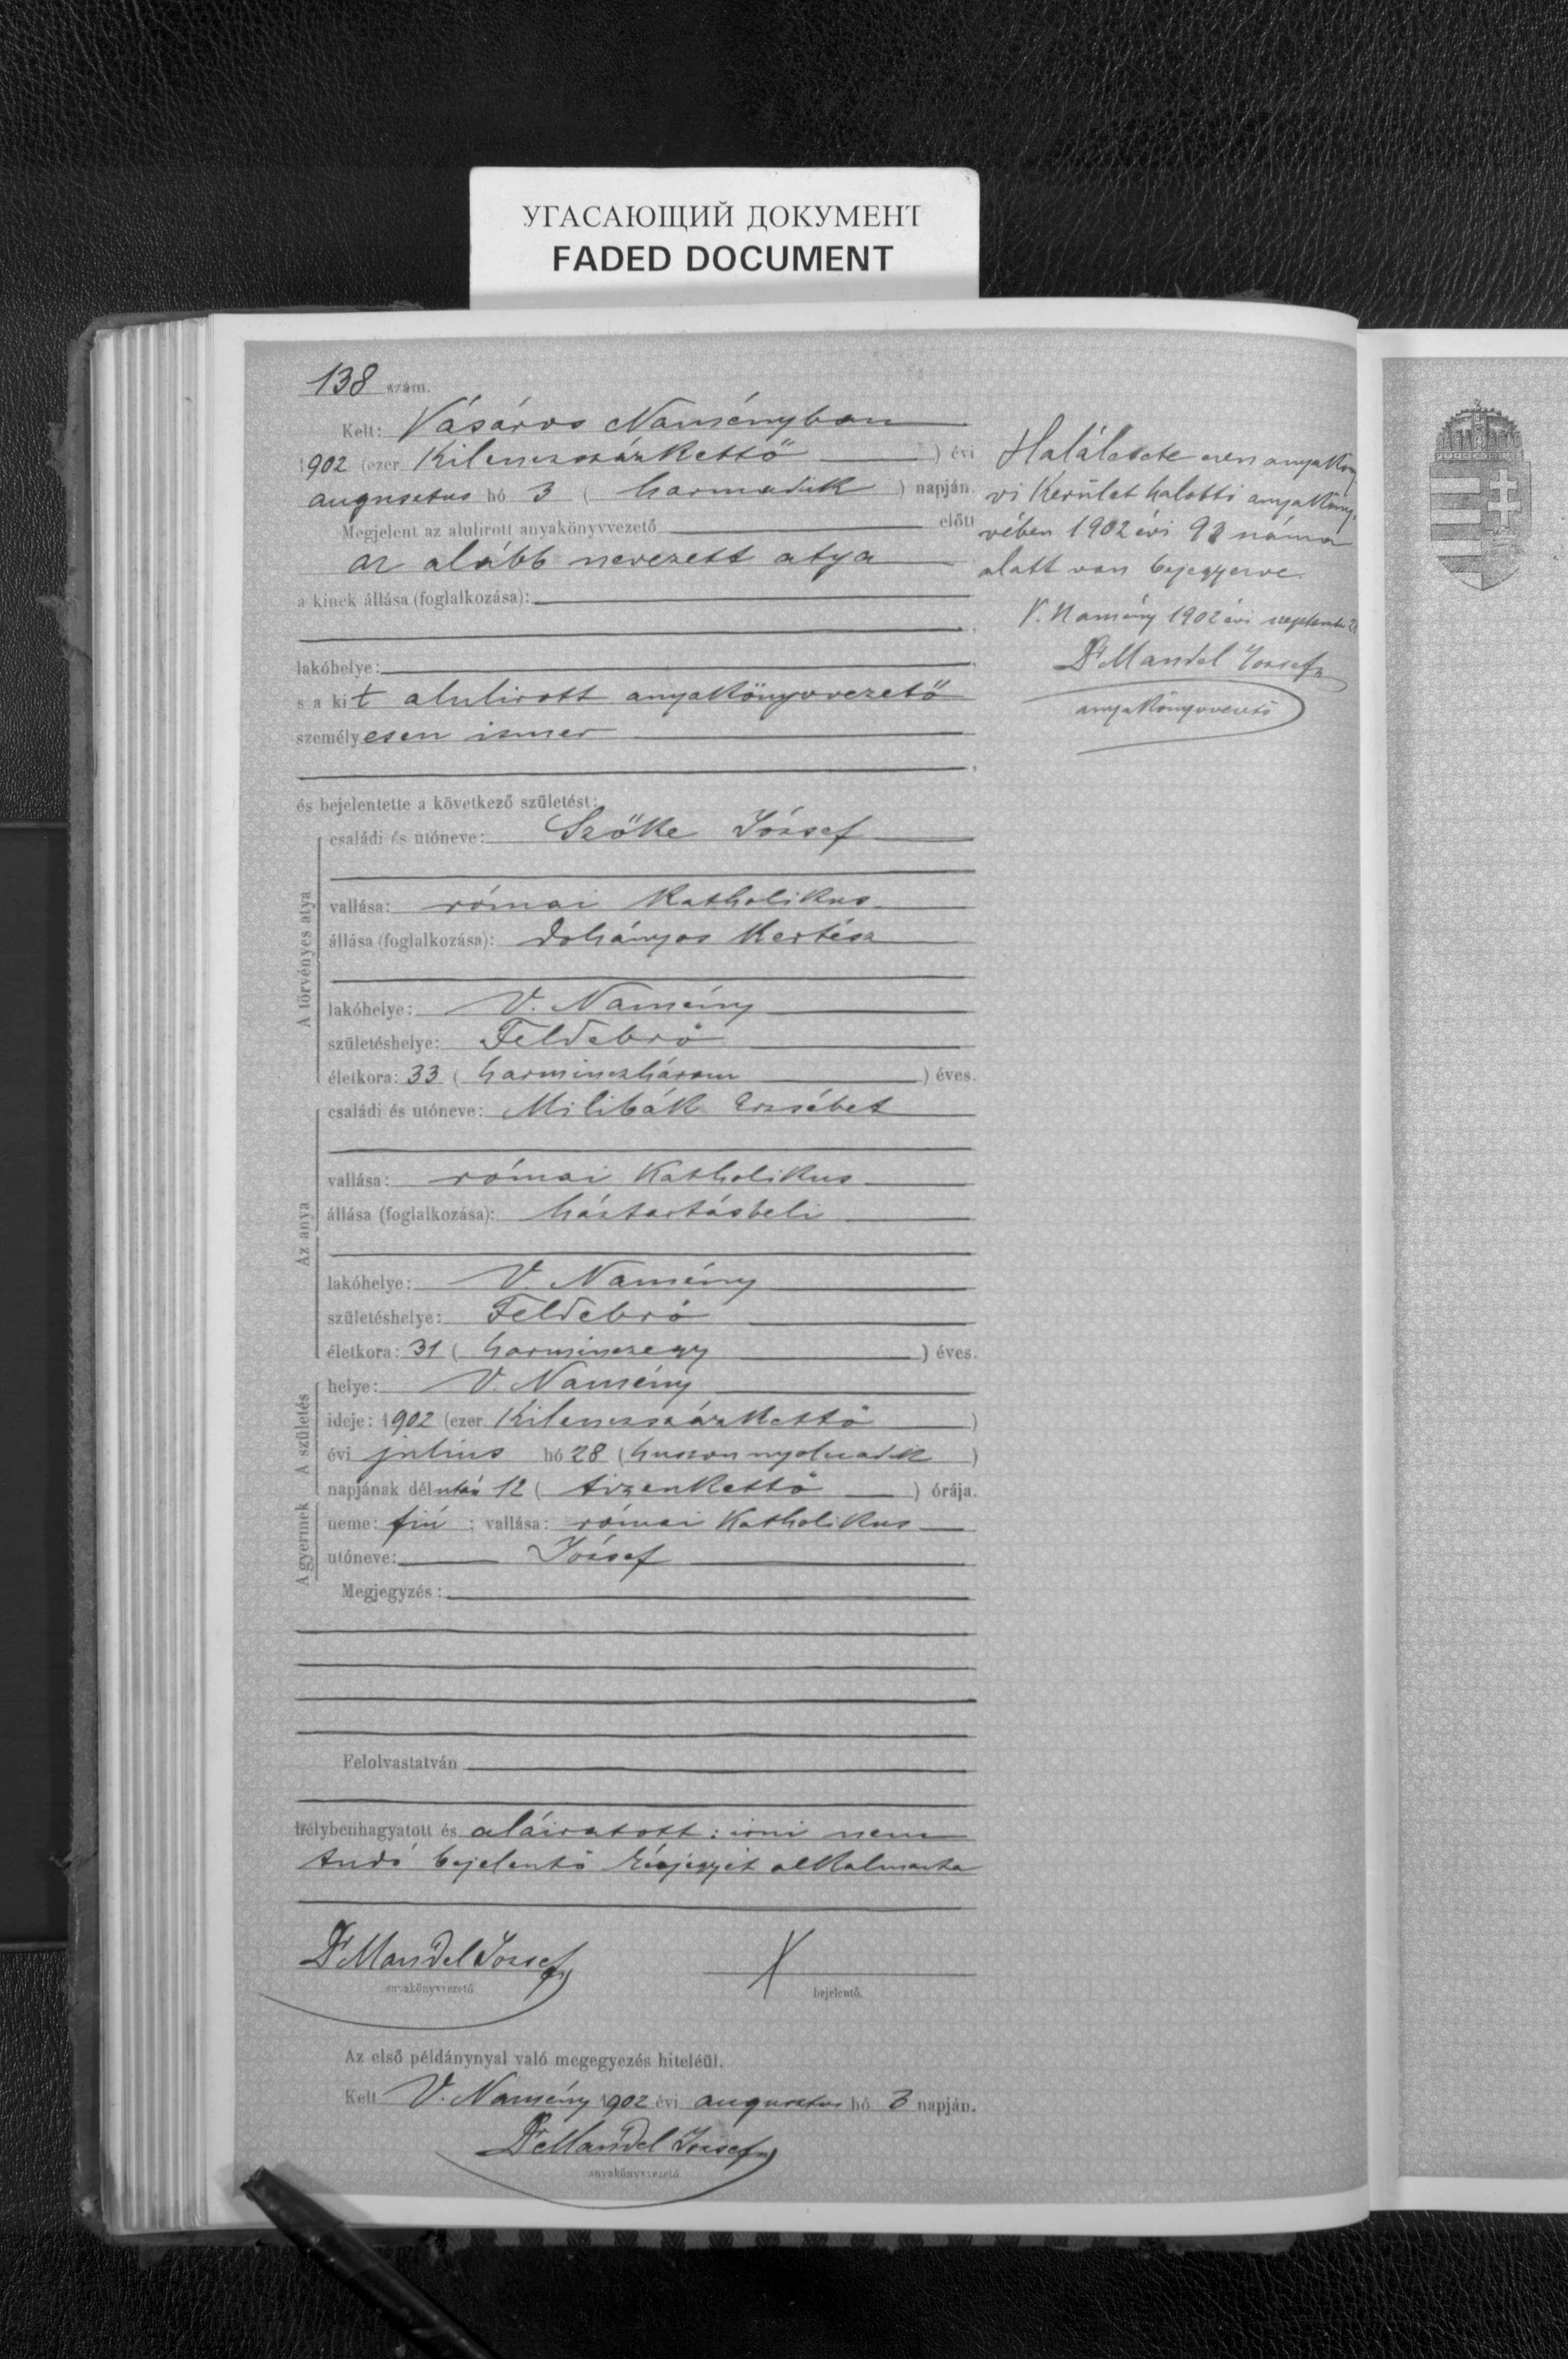 УГАСАЮЩИЙ ДОКУМЕНТ
FADED DOCUMENT
138 szám.
Kelt: Vásáros Naményban
1902 (ezer Kilenczszázkettő ) évi
augusztus hó 3 ( harmadik ) napján.
Megjelent az alulirott anyakönyvvezető előtt
az alább nevezett atya
a kinek állása (foglalkozása):
lakóhelye:
s a kit alulirott anyakönyvvezető
személyesen ismer
és bejelentette a következő születést:
A törvényes atya
családi és utóneve: Szőke József
vallása: római katholikus
állása (foglalkozása): dohányos kertész
lakóhelye: V. Namény
születéshelye: Feldebrő
életkora: 33 ( harminczhárom ) éves.
Az anya
családi és utóneve: Milibák Erzsébet
vallása: római katholikus
állása (foglalkozása): háztartásbeli
lakóhelye: V. Namény
születéshelye: Feldebrő
életkora: 31 ( harminczegy ) éves.
A születés
helye: V. Namény
ideje: 1902 (ezer Kilenczszázkettő )
évi julius hó 28 ( huszonnyolczadik )
napjának délután 12 ( tizenkettő ) órája.
A gyermek
neme: fiú ; vallása: római katholikus
utóneve: József
Megjegyzés:
Felolvastatván
helybenhagyatott és aláiratott: irni nem
tudó bejelentő kézjegyét alkalmazta
Dr Mandel József
anyakönyvvezető
X
bejelentő.
Az első példánynyal való megegyezés hiteléül.
Kelt V. Namény 1902 évi augusztus hó 3 napján.
Dr Mandel József
anyakönyvvezető
Halálesete ezen anyaköny
vi kerület halotti anyaköny
vében 1902 évi száma
alatt van bejegyezve.
V. Namény 1902 évi szeptember
Dr Mandel József
anyakönyvvezető